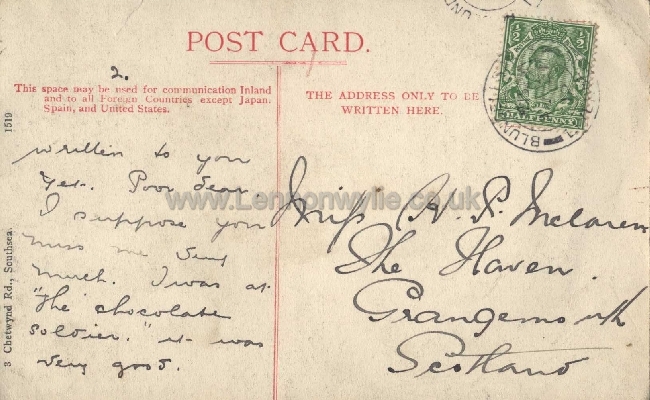 POST CARD.
2.
This space may be used for communication Inland
and to all Foreign Countries except Japan,
Spain, and United States.
THE ADDRESS ONLY TO BE
WRITTEN HERE.
written to you
yet. Poor dear
I suppose you
miss me very
much. I was at
"The chocolate
soldier." it was
very good.
Miss A. P. McLaren
The Haven
Grangemouth
Scotland
3 Chetwynd Rd., Southsea. 1519
www.Lennonwylie.co.uk
½ ½
HALFPENNY
BLUN